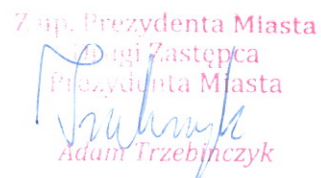 Z up. Prezydenta Miasta
Drugi Zastępca
Prezydenta Miasta
Adam Trzebińczyk